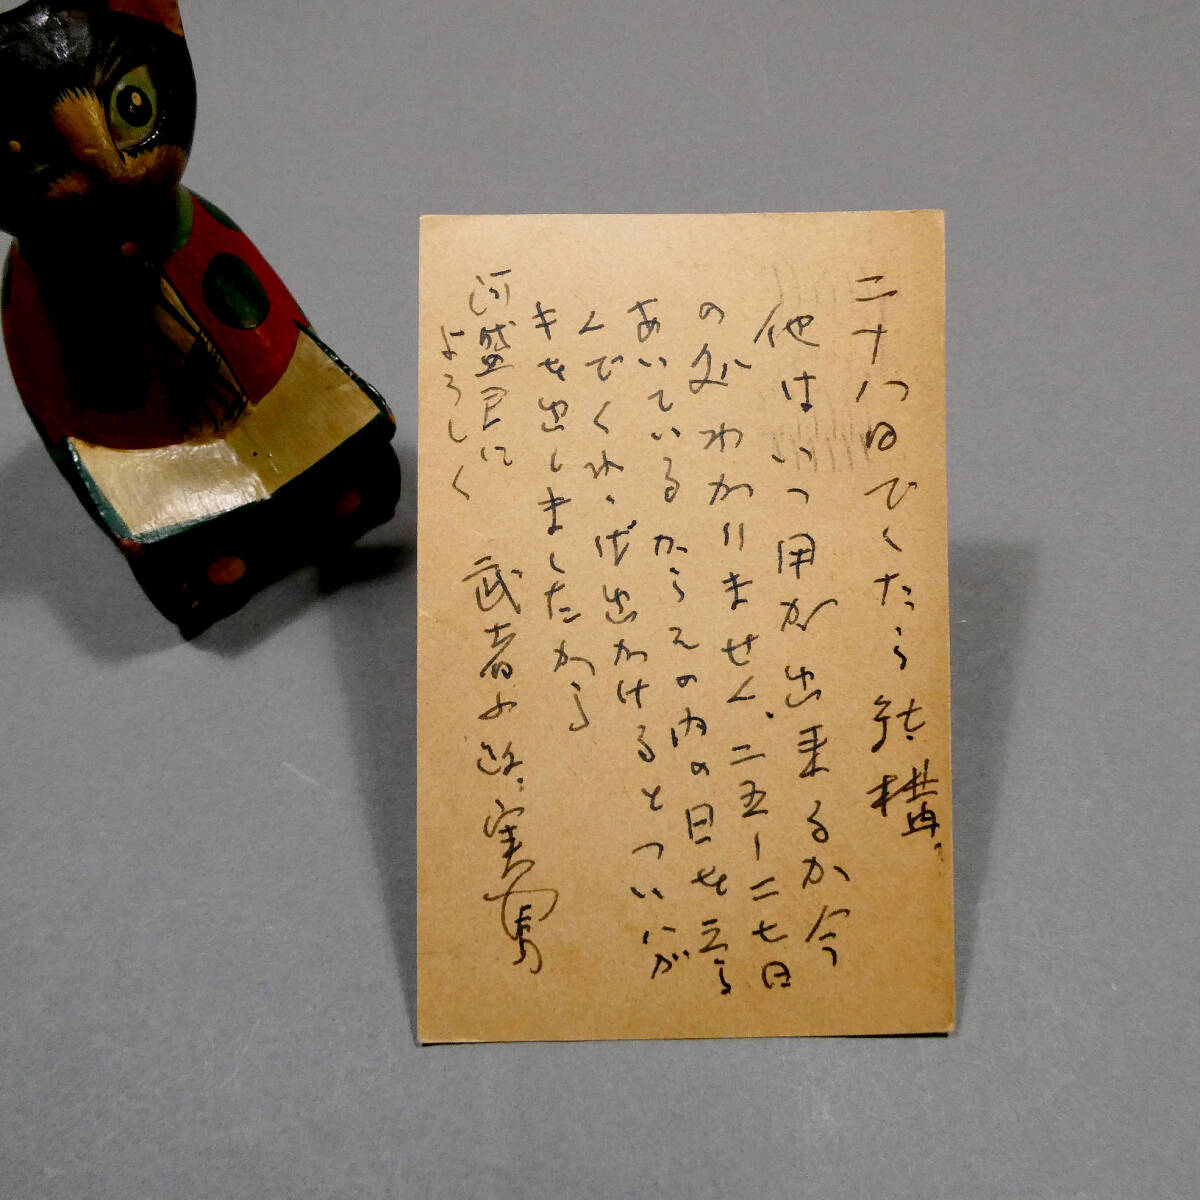 二十八日でしたら結構、
他はいつ用が出来るか今
の処わかりません、二五ー二七日
あいているからその内の日を
んでくれゝば出かけるとついハが
キを出しましたから
河盛君に
よろしく
武者小路実篤